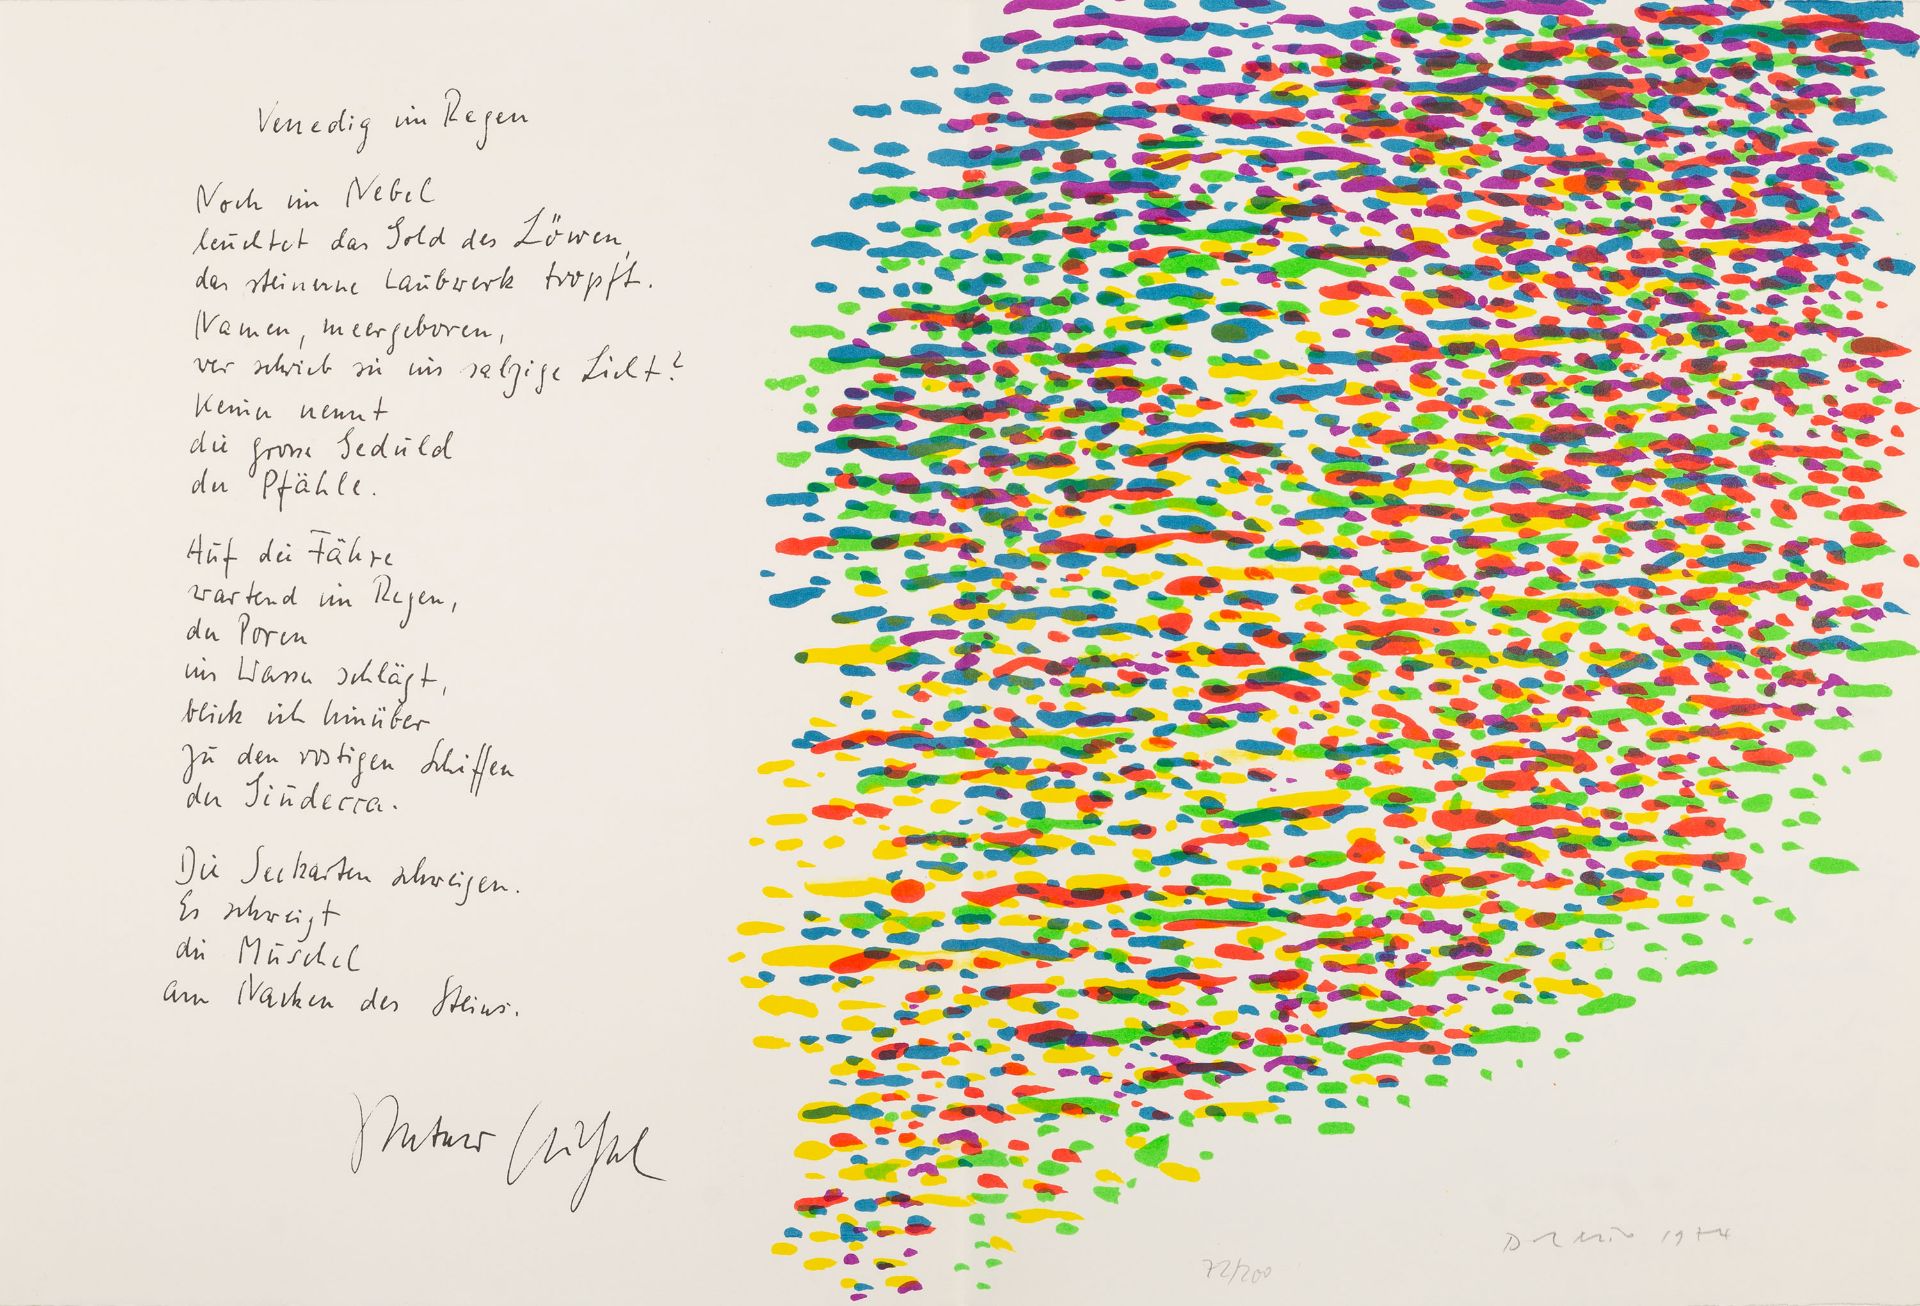 Venedig im Regen
Noch im Nebel
leuchtet das Gold des Löwen,
das steinerne Laubwerk tropft.
Namen, meergeboren,
wer schrieb sie ins salzige Licht?
Keiner nennt
die grosse Geduld
der Pfähle.
Auf die Fähre
wartend im Regen,
der Poren
ins Wasser schlägt,
blick ich hinüber
zu den rostigen Schiffen
der Giudecca.
Die Seekarten schweigen.
Es schweigt
die Muschel
am Nacken des Steins.
72/200
1974